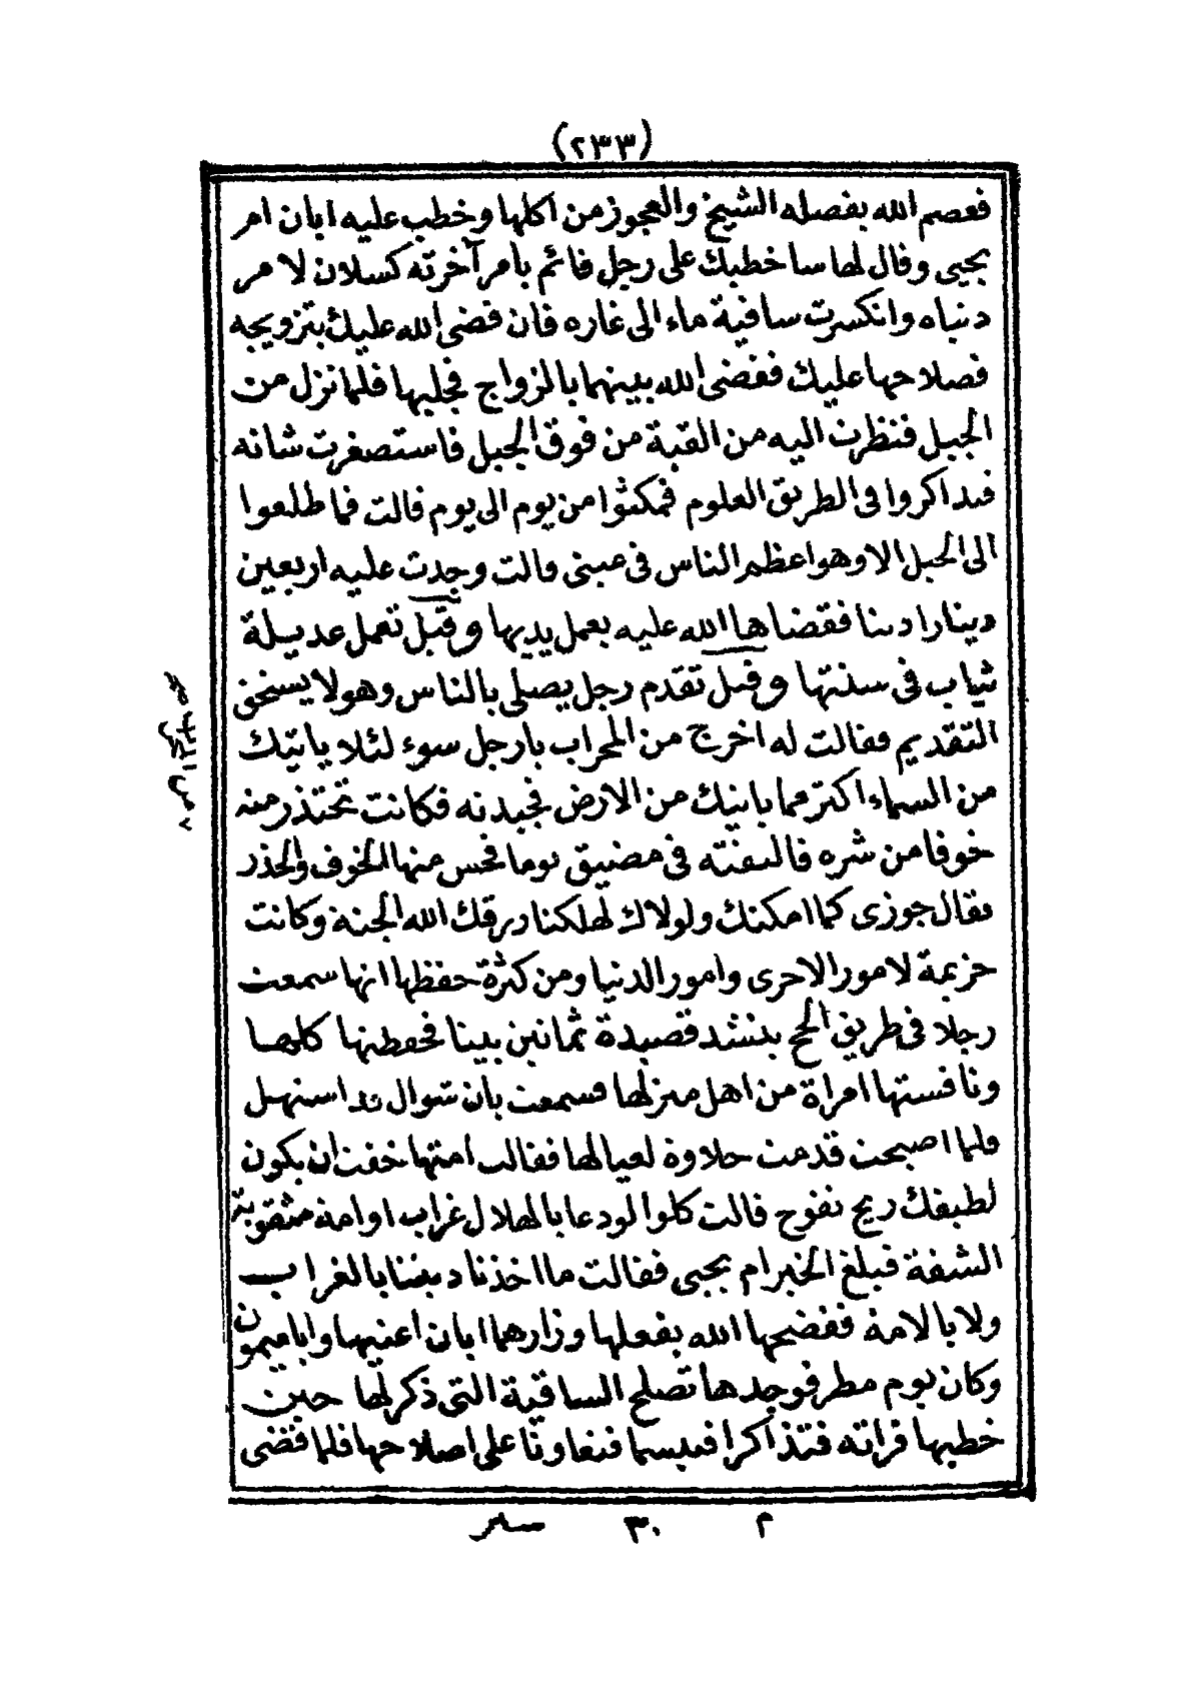 (٢٣٣)
فعصم الله بفضله الشيخ والعجوز من اكلها وخطب عليه ابان ام
يحيى وقال لها سا خطبك على رجل قائم بامر آخرته كسلان لا مر
دنياه وانكسرت ساقية ماء الى غاره فان قضى الله عليك بتزويجه
فصلاحها عليك فقضى الله بينهما بالزواج فجلبها فلما نزل من
الجبل فنظرت اليه من القبة من فوق الجبل فاستصغرت شانه
فتذاكروا فى الطريق العلوم فمكثوا من يوم الى يوم قالت فما طلعوا
الى الجبل الا وهو اعظم الناس فى عينى قالت وجدت عليه اربعين
دينارا دينا فقضاها الله عليه بعمل يديها وقيل تعمل عديلة
ثياب فى سنتها وقيل تقدم رجل يصلى بالناس وهو لا يستحق
التقديم فقالت له اخرج من المحراب يا رجل سوء لئلا ياتيك
من السماء اكثر مما ياتيك من الارض فجبدته فكانت تحتذر منه
خوفا من شره فالتفته فى مضيق يوما فحس منها الخوف والحذر
فقال جوزى كما امكنك ولولاك لهلكنا درقك الله الجنة وكانت
حزيمة لامور الاخرى وامور الدنيا ومن كثرة حفظها انها سمعت
رجلا فى طريق الحج ينشد قصيدة ثمانين بيتا فحفظتها كلها
ونافستها امراة من اهل منزلها فسمعت بان شوال قد استهل
فلما اصبحت قدمت حلاوة لعيالها فقالت امتها خفت ان يكون
لطبيفك ريح تفوح قالت كلوا لو دعا بالهلال غراب او امة مثقوبة
الشفة فبلغ الخبر ام يحيى فقالت ما اخذنا ديننا بالغراب
ولا بالامة ففضحها الله بفعلها وزارهما ابان اعنيها وابا ميمون
وكان يوم مطر فوجدها تصلح الساقية التى ذكر لها حين
خطبها قراته فتذاكرا فتبسما فتعاونا على اصلاحها فلما قضى
م ٣٠ سير